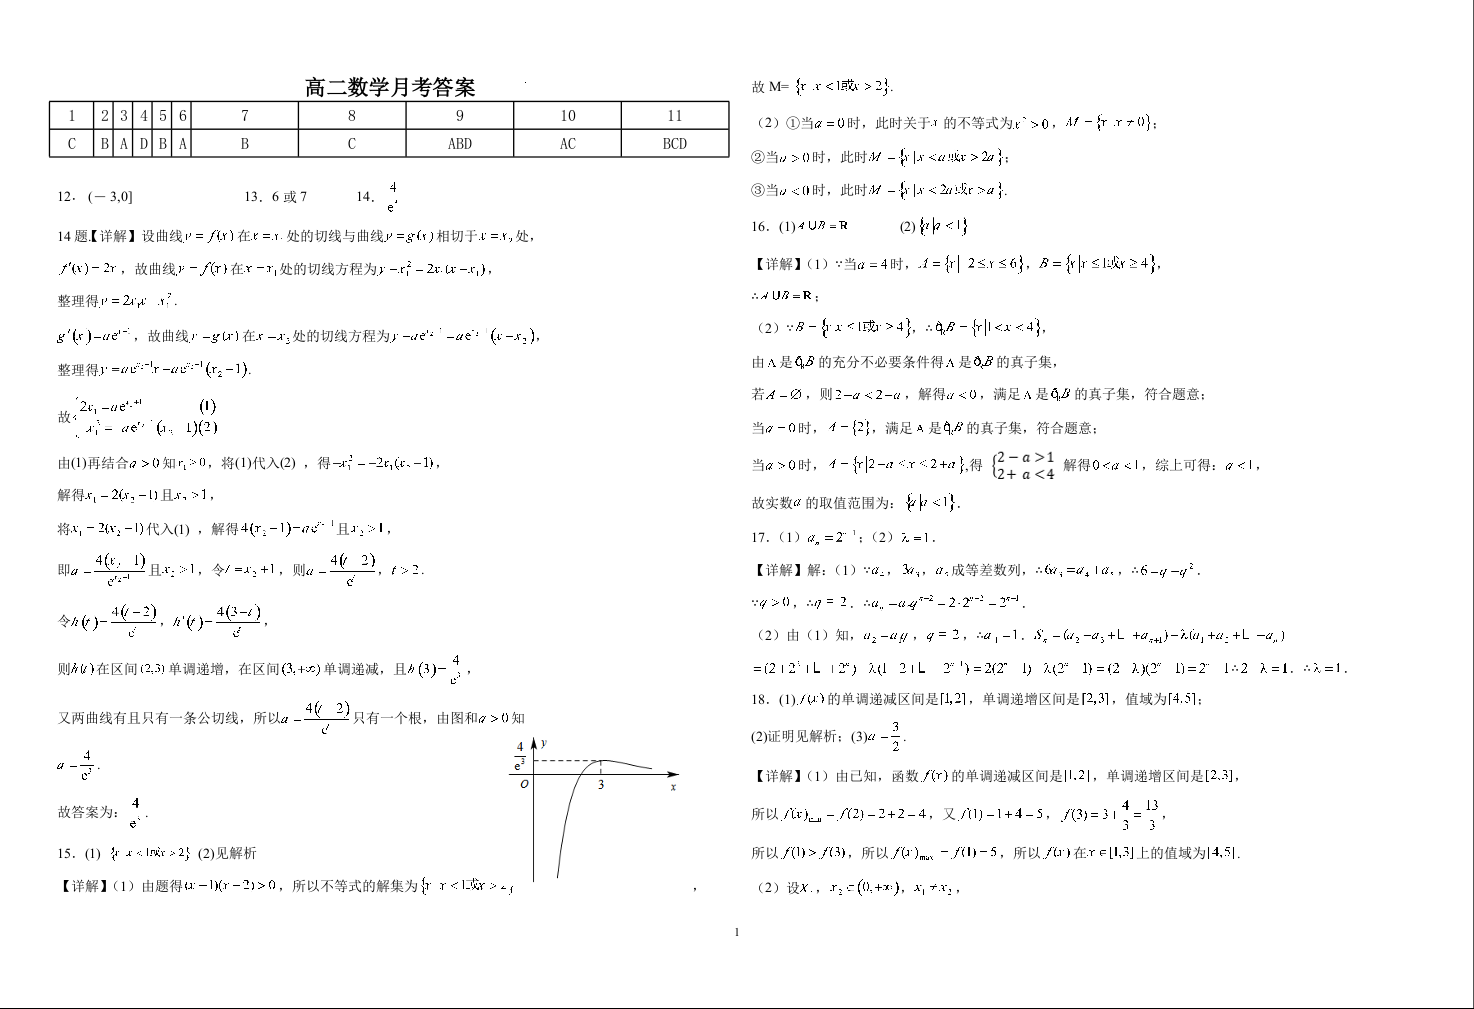 高二数学月考答案
1 2 3 4 5 6 7 8 9 10 11
C B A D B A B C ABD AC BCD
12． (－3,0] 13．6 或 7 14． 4/e
14 题【详解】设曲线 y = f(x) 在 x = x 处的切线与曲线 y = g(x) 相切于 x = x₂ 处，
f′(x) = 2x ，故曲线 y = f(x) 在 x = x₁ 处的切线方程为 y − x₁² = 2x (x − x₁)，
整理得 y = 2x₁x x₁² .
g′(x) = ae ，故曲线 y = g(x) 在 x = x₂ 处的切线方程为 y − ae = ae (x − x₂)，
整理得 y = ae x − ae (x₂ − 1).
故 2x₁ = ae (1)
x₁ = ae (x₂ 1) (2)
由(1)再结合 a > 0 知 x₁ > 0 ，将(1)代入(2) ，得 −x₁² = −2x₁(x₂ −1)，
解得 x₁ = 2(x₂ −1) 且 x₂ > 1 ，
将 x₁ = 2(x₂ −1) 代入(1) ，解得 4(x₂ −1) = ae 且 x₂ > 1 ，
即 a = 4(x₂ 1)/e 且 x₂ > 1 ，令 t = x₂ + 1 ，则 a = 4(t 2)/e ， t > 2 .
令 h(t) = 4(t − 2)/e ， h′(t) = 4(3 − t)/e ，
则 h(t) 在区间 (2,3) 单调递增，在区间 (3,+∞) 单调递减，且 h(3) = 4/e³ ，
又两曲线有且只有一条公切线，所以 a = 4(t 2)/e 只有一个根，由图和 a > 0 知
a = 4/e³ .
4/e³ y O 3 x
故答案为： 4/e .
15．(1) {x x < 1或x > 2} (2)见解析
【详解】（1）由题得 (x −1)(x − 2) > 0 ，所以不等式的解集为 {x x < 1或x > 2 ，
故 M= {x x < 1或x > 2}.
（2）①当 a = 0 时，此时关于 x 的不等式为 x² > 0 ， M = {x x ≠ 0}；
②当 a > 0 时，此时 M = {x | x < a或x > 2a}；
③当 a < 0 时，此时 M = {x | x < 2a或x > a}.
16．(1) A∪B = R (2) {a|a < 1}
【详解】（1）∵当 a = 4 时， A = {x | 2 ≤ x ≤ 6}， B = {x | x ≤ 1或x ≥ 4}，
∴ A∪B = R ；
（2）∵ B = {x x < 1或x > 4}，∴ ∁RB = {x|1 < x < 4}，
由 A 是 ∁RB 的充分不必要条件得 A 是 ∁RB 的真子集，
若 A = ∅ ，则 2 − a < 2 − a ，解得 a < 0 ，满足 A 是 ∁RB 的真子集，符合题意；
当 a = 0 时， A = {2}，满足 A 是 ∁RB 的真子集，符合题意；
当 a > 0 时， A = {x|2 − a < x < 2 + a},得 {2 − a > 1 2 + a < 4 解得 0 < a < 1 ，综上可得： a < 1 ，
故实数 a 的取值范围为： {a|a < 1}.
17.（1） aₙ = 2ⁿ⁻¹；（2） λ = 1 .
【详解】解：（1）∵ a ， 3a₃ ， a 成等差数列，∴ 6a₃ = a₄ + a₅ ，∴ 6 = q − q² .
∵ q > 0 ，∴ q = 2 ．∴ aₙ = a qⁿ⁻² = 2·2ⁿ⁻² = 2ⁿ⁻¹ .
（2）由（1）知， a₂ = a q ， q = 2 ，∴ a₁ = 1 . Sₙ = (a₂ − a₃ + L + aₙ₊₁) − λ(a₁ + a₂ + L − aₙ)
= (2 + 2² + L + 2ⁿ) λ(1 2 + L = 2ⁿ⁻¹) = 2(2ⁿ 1) λ(2ⁿ 1) = (2 λ)(2ⁿ 1) = 2ⁿ 1 ∴ 2 λ = 1 . ∴ λ = 1 .
18．(1) f(x) 的单调递减区间是 [1,2]，单调递增区间是 [2,3]，值域为 [4,5]；
(2)证明见解析；(3) a = 3/2 .
【详解】（1）由已知，函数 f(x) 的单调递减区间是 [1,2]，单调递增区间是 [2,3]，
所以 f(x) = f(2) = 2 + 2 = 4 ，又 f(1) = 1 + 4 = 5 ， f(3) = 3 + 4/3 = 13/3 ，
所以 f(1) > f(3)，所以 f(x)max = f(1) = 5 ，所以 f(x) 在 x ∈ [1,3] 上的值域为 [4,5] .
（2）设 x ， x₂ ∈ (0,+∞)， x₁ ≠ x₂ ，
1